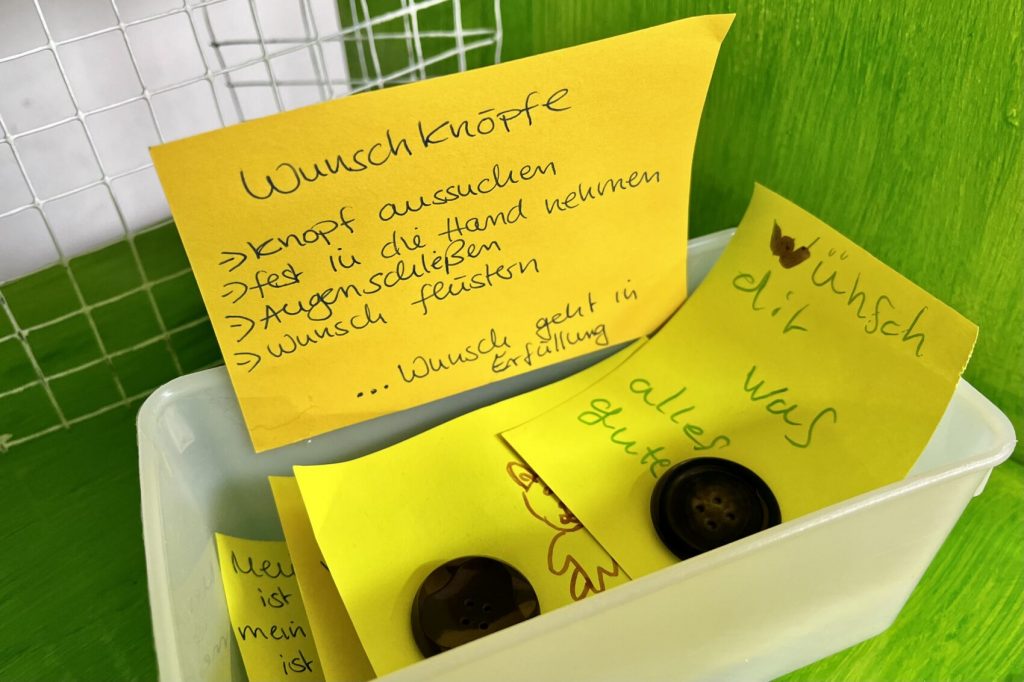 Wunschknöpfe
→ Knopf aussuchen
→ fest in die Hand nehmen
→ Augenschließen
→ Wunsch flüstern
... Wunsch geht in
Erfüllung
Wünsch
dir was
alles
gute
Mein
ist
mein
ist